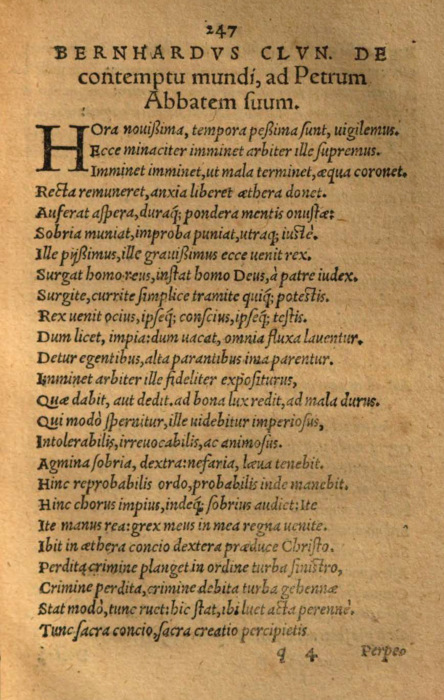 247
BERNHARDVS CLVN. DE
contemptu mundi, ad Petrum
Abbatem suum.
HOra nouißima, tempora peßima sunt, uigilemus.
Ecce minaciter imminet arbiter ille supremus.
Imminet imminet, ut mala terminet, æqua coronet.
Recta remuneret, anxia liberet æthera donet.
Auferat aspera, duraq; pondera mentis onustæ:
Sobria muniat, improba puniat, utraq; iustè.
Ille pijßimus, ille grauißimus ecce uenit rex.
Surgat homo reus, instat homo Deus, à patre iudex.
Surgite, currite simplice tramite quiq; potestis.
Rex uenit ocius, ipseq; conscius, ipseq; testis.
Dum licet, impia: dum uacat, omnia fluxa lauentur.
Detur egentibus, alta parantibus ima parentur.
Imminet arbiter ille fideliter expositurus,
Quæ dabit, aut dedit. ad bona lux redit, ad mala durus.
Qui modò spernitur, ille uidebitur imperiosus,
Intolerabilis, irreuocabilis, ac animosus.
Agmina sobria, dextra: nefaria, læua tenebit.
Hinc reprobabilis ordo, probabilis inde manebit.
Hinc chorus impius, indeq; sobrius audiet: Ite
Ite manus rea: grex meus in mea regna uenite.
Ibit in æthera concio dextera præduce Christo.
Perdita crimine planget in ordine turba sinistro,
Crimine perdita, crimine debita turba gehennæ
Stat modò, tunc ruet: hic stat, ibi luet acta perennè.
Tunc sacra concio, sacra creatio percipietis
q 4 Perpeo